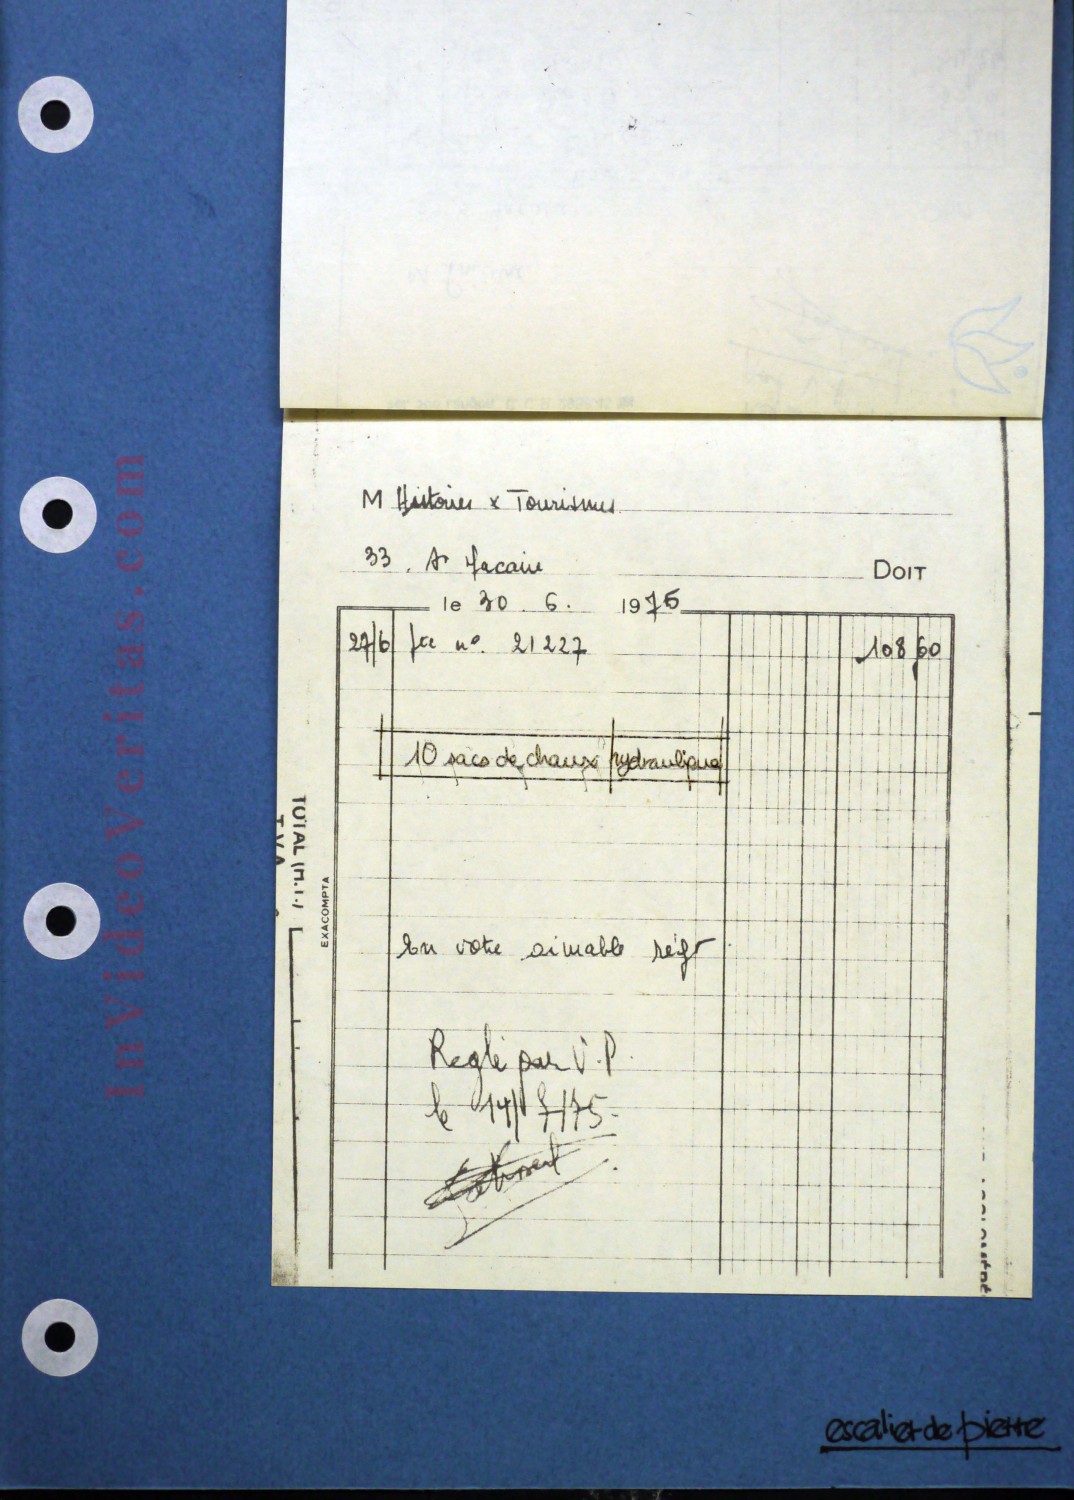 M Histoires & Tourismes
33. St Macaire DOIT
le 30. 6. 1975
27/6 fre n° 21227 108,60
10 sacs de chaux hydraulique
TOTAL (H.T.)
T.V.A
EXACOMPTA
En votre aimable règt
Reglé par V.P.
le 14/7/75.
escalier de pierre
InVideoVeritas.com